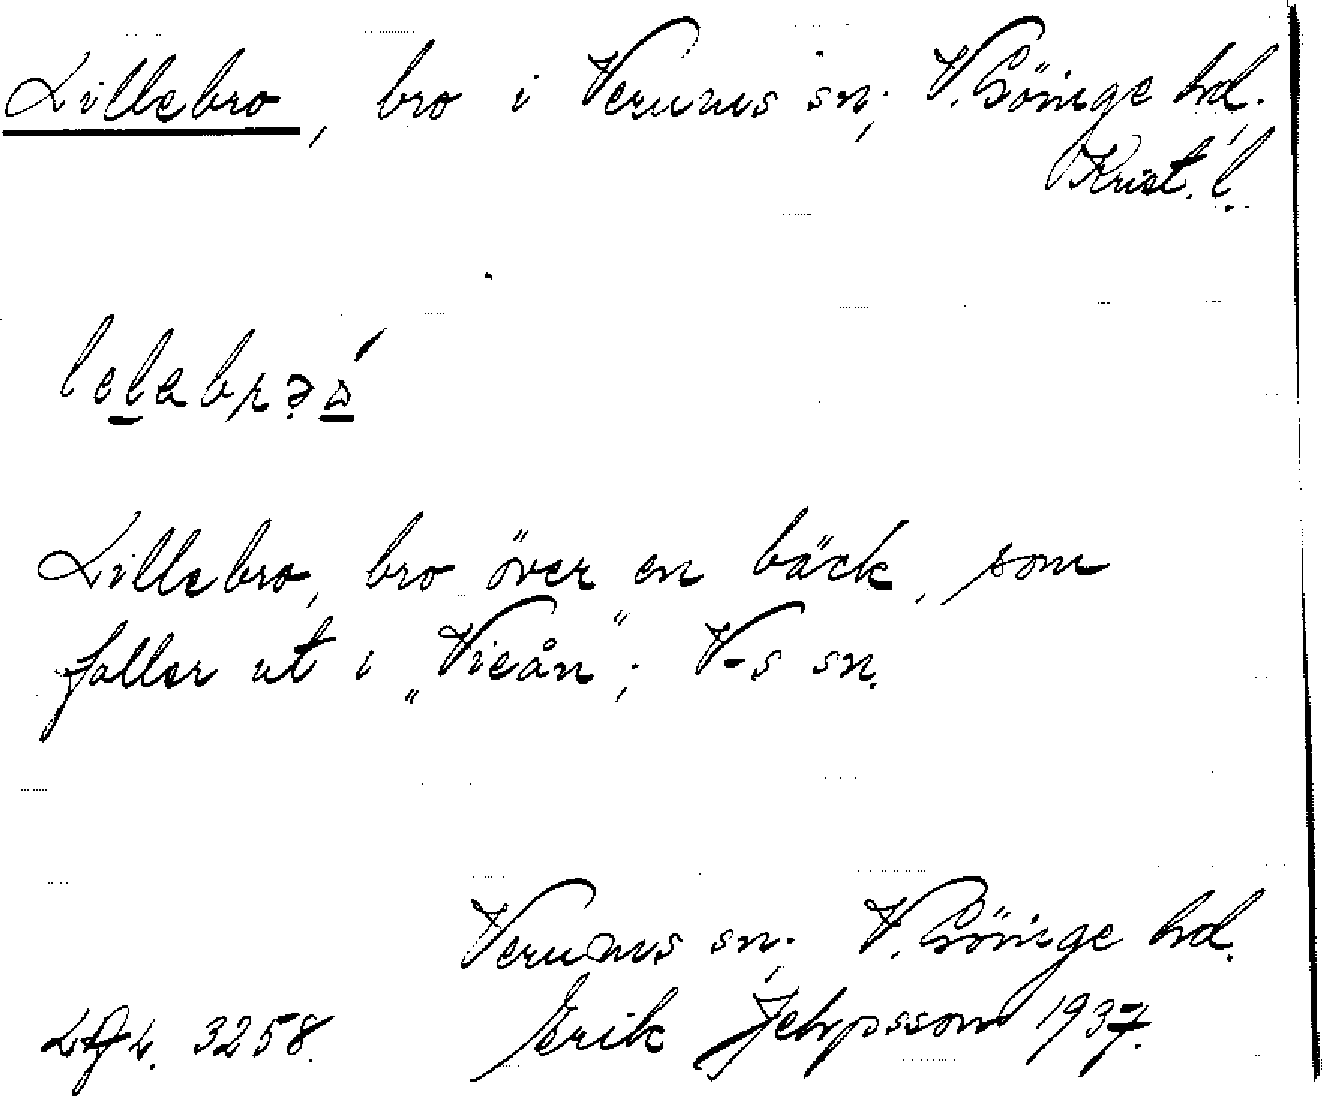 Lillebro, bro i Verums sn; V. Göinge hd.
Krist. l.
Lillebro, bro över en bäck, som
faller ut i „Vieån"; V-s sn.
Verums sn; V. Göinge hd.
3258. Erik Jeppsson 1937.